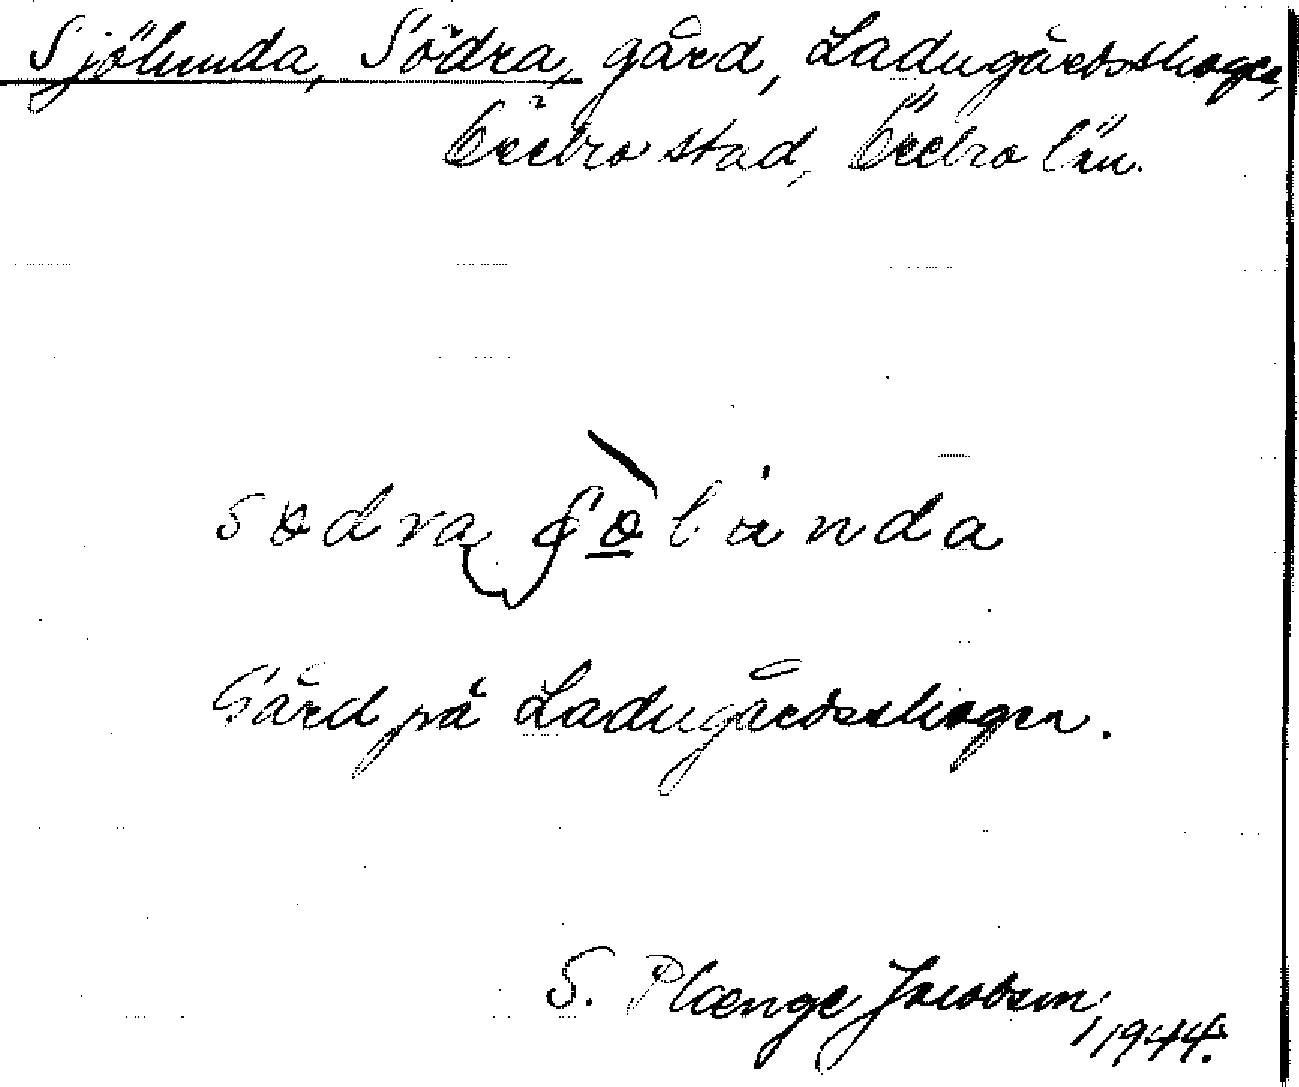 Sjölunda, Södra, gård, Ladugårdsskogen,
Örebro stad, Örebro län.
södra
Gård på Ladugårdsskogen.
S. Plænge Jacobson, 1944.